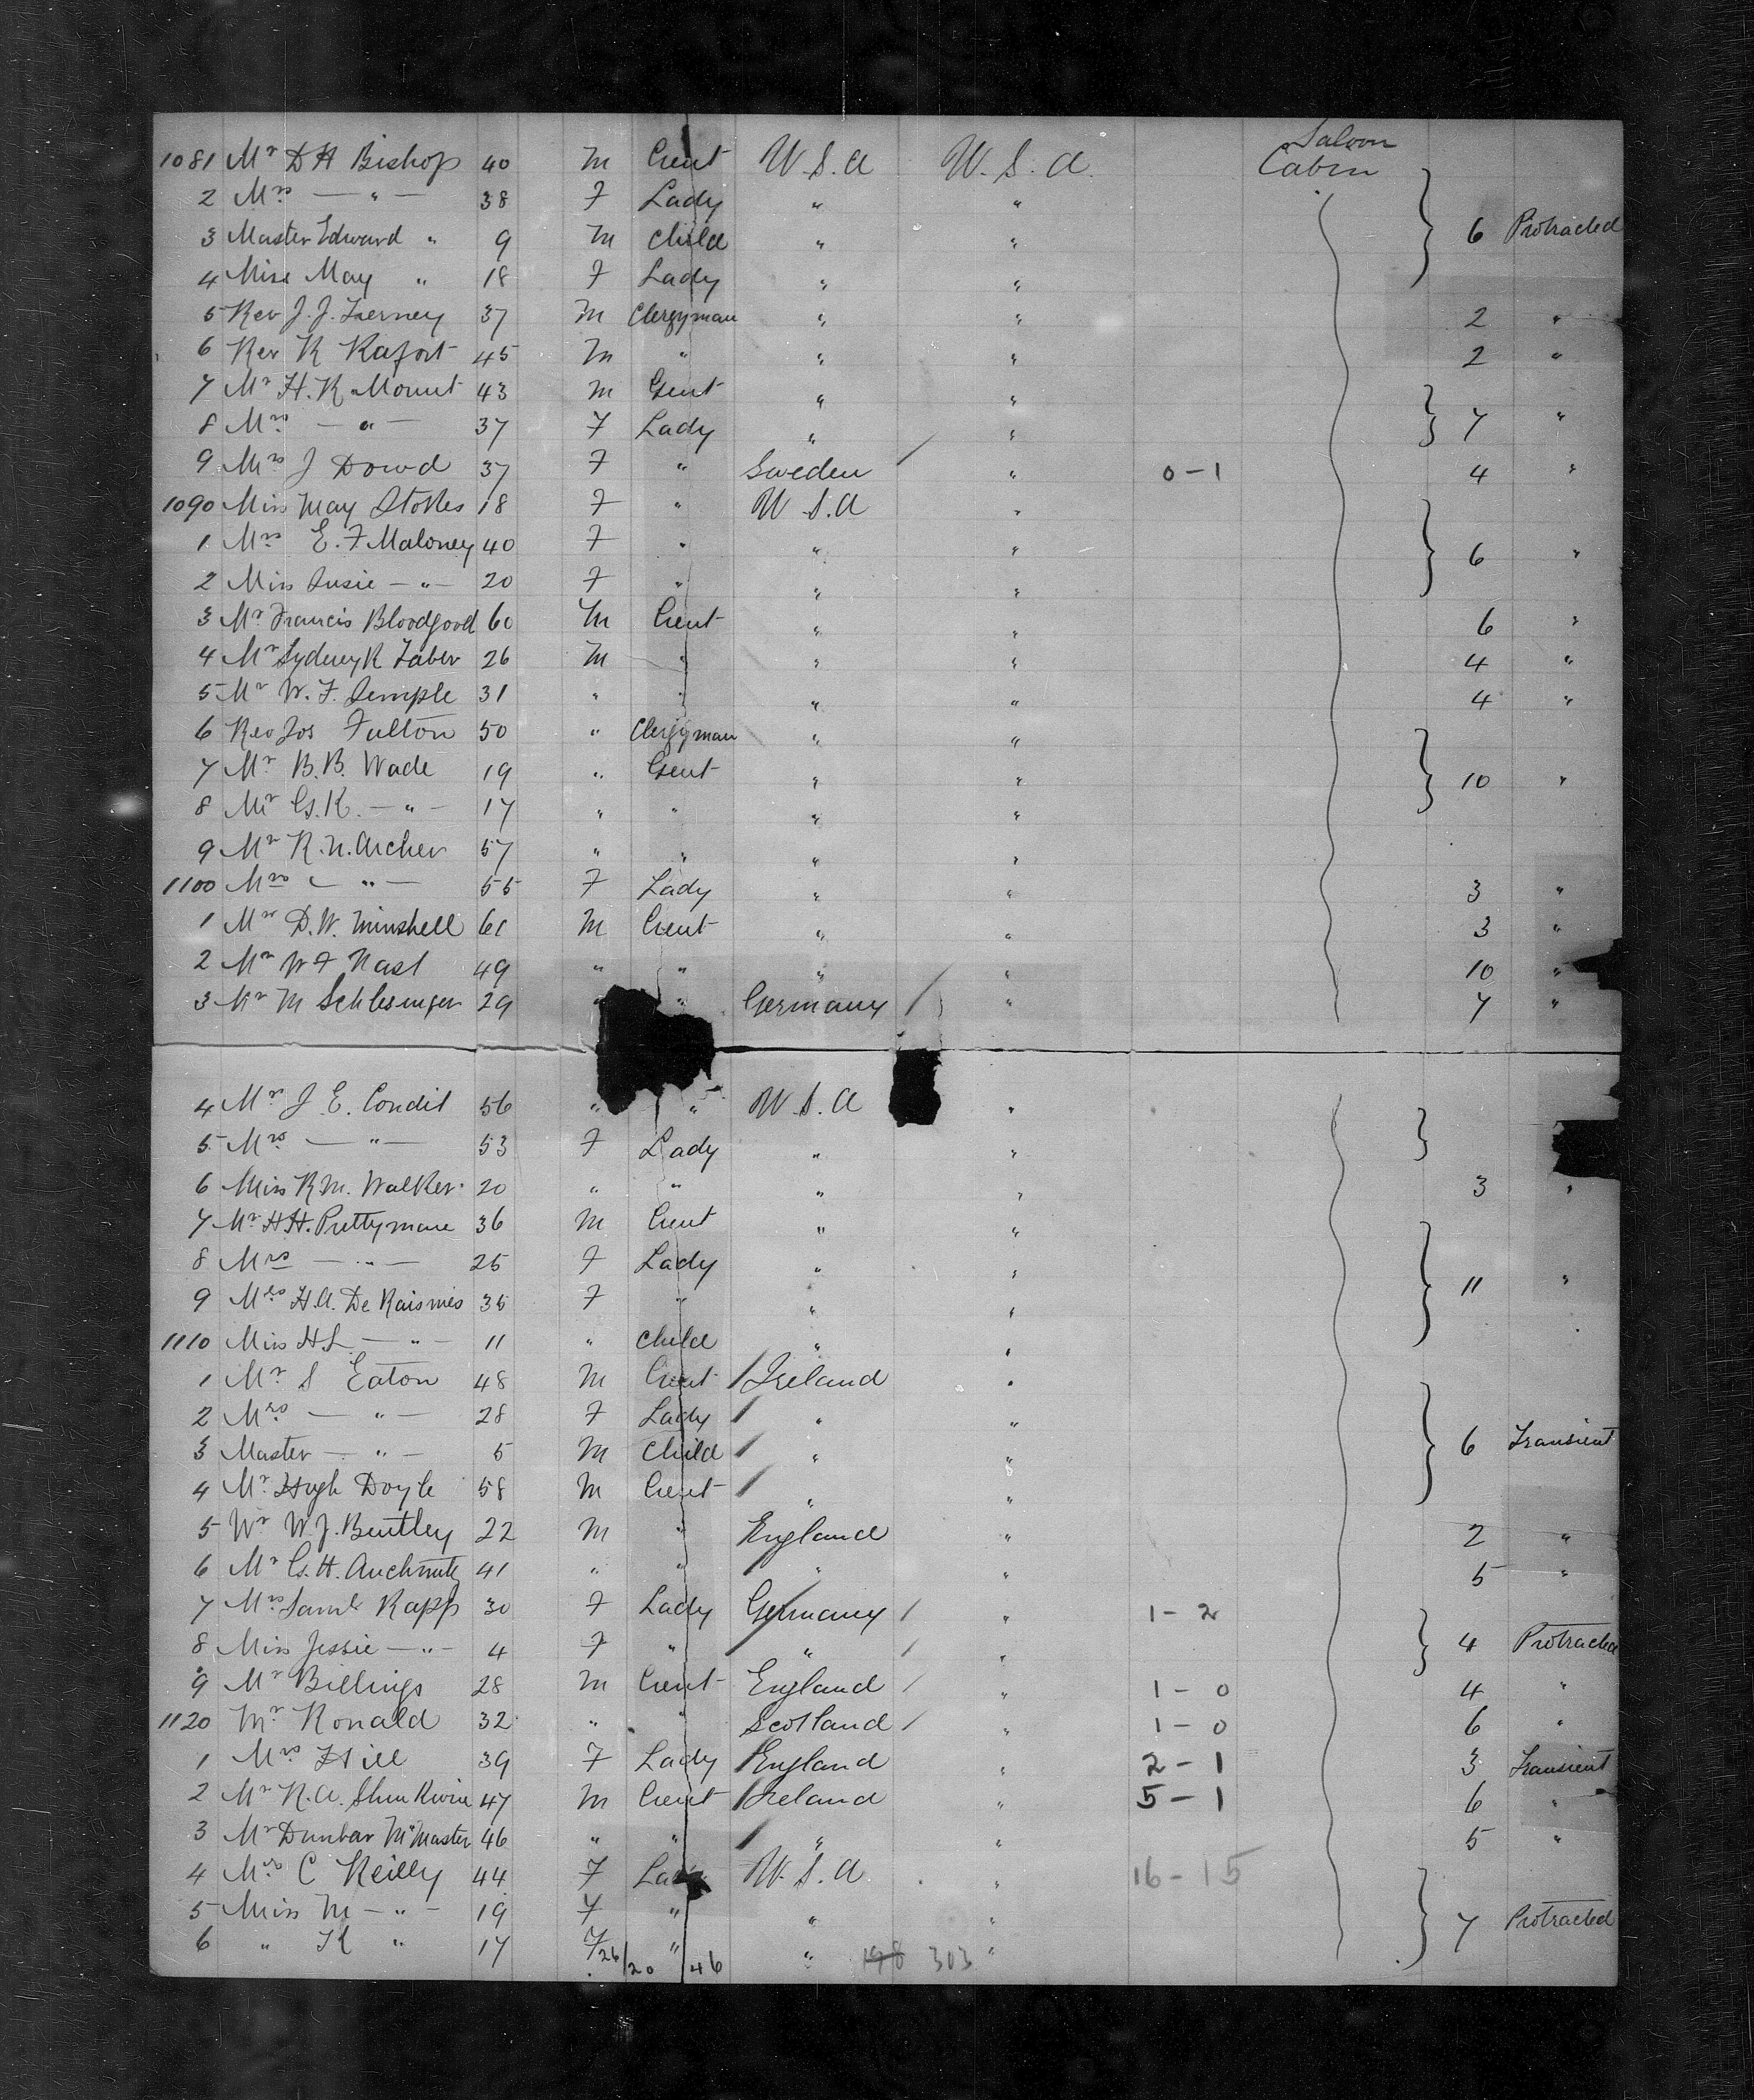 Saloon
1081 Mr D H Bishop 40 M Gent U.S.A U.S.A. Cabin
2 Mrs — " — 38 F Lady " "
3 Master Edward " 9 M Child " " 6 Protracted
4 Miss May " 18 F Lady " "
5 Rev J. J. Tierney 37 M Clergyman " " 2 "
6 Rev R Rafort 45 M " " " 2 "
7 Mr H. R. Mount 43 M Gent " "
8 Mrs — " — 37 F Lady " " 7 "
9 Mrs J Dowd 37 F " Sweden " 0 - 1 4 "
1090 Miss May Stokes 18 F " U.S.A "
1 Mrs E. F Maloney 40 F " " " 6 "
2 Miss Susie — " — 20 F " " "
3 Mr Francis Bloodgood 60 M Gent " " 6 "
4 Mr Sydney R Taber 26 M " " " 4 "
5 Mr W. F. Semple 31 " " " " 4 "
6 Rev Jos Fulton 50 " Clergyman " "
7 Mr B. B. Wade 19 " Gent " " 10 "
8 Mr G. K. — " — 17 " " " "
9 Mr R. N. Archer 57 " " " "
1100 Mrs — " — 55 F Lady " " 3 "
1 Mr D. W. Minshell 61 M Gent " " 3 "
2 Mr W F Nast 49 " " " " 10 "
3 Mr M Schlesinger 29 " " Germany " 7 "
4 Mr J E. Condit 56 " " U.S.A "
5 Mrs — " — 53 F Lady " "
6 Miss R. M. Walker 20 " " " " 3 "
7 Mr H H. Prettyman 36 M Gent " "
8 Mrs — " — 25 F Lady " "
9 Mrs H. A. De Raismes 35 F " " " 11 "
1110 Miss H L — " — 11 " Child " "
1 Mr S Eaton 48 M Gent Ireland "
2 Mrs — " — 28 F Lady " "
3 Master — " — 5 M Child " " 6 Transient
4 Mr Hugh Doyle 58 M Gent " "
5 Mr W. J. Bentley 22 M " England " 2 "
6 Mr G. H. Auchmuty 41 " " " " 5 "
7 Mrs Saml Rapp 30 F Lady Germany " 1 - 2
8 Miss Jessie — " — 4 F " " " 4 Protracted
9 Mr Billings 28 M Gent England " 1 - 0 4 "
1120 Mr Ronald 32 " " Scotland " 1 - 0 6 "
1 Mrs Hill 39 F Lady England " 2 - 1 3 Transient
2 Mr R. A. 47 M Gent Ireland " 5 - 1 6 "
3 Mr Dunbar McMaster 46 " " " " 5 "
4 Mrs C Reilly 44 F Lady U.S.A " 16 - 15
5 Miss M — " — 19 F " " " 7 Protracted
6 " K " 17 F " " "
26/20 46 198 303